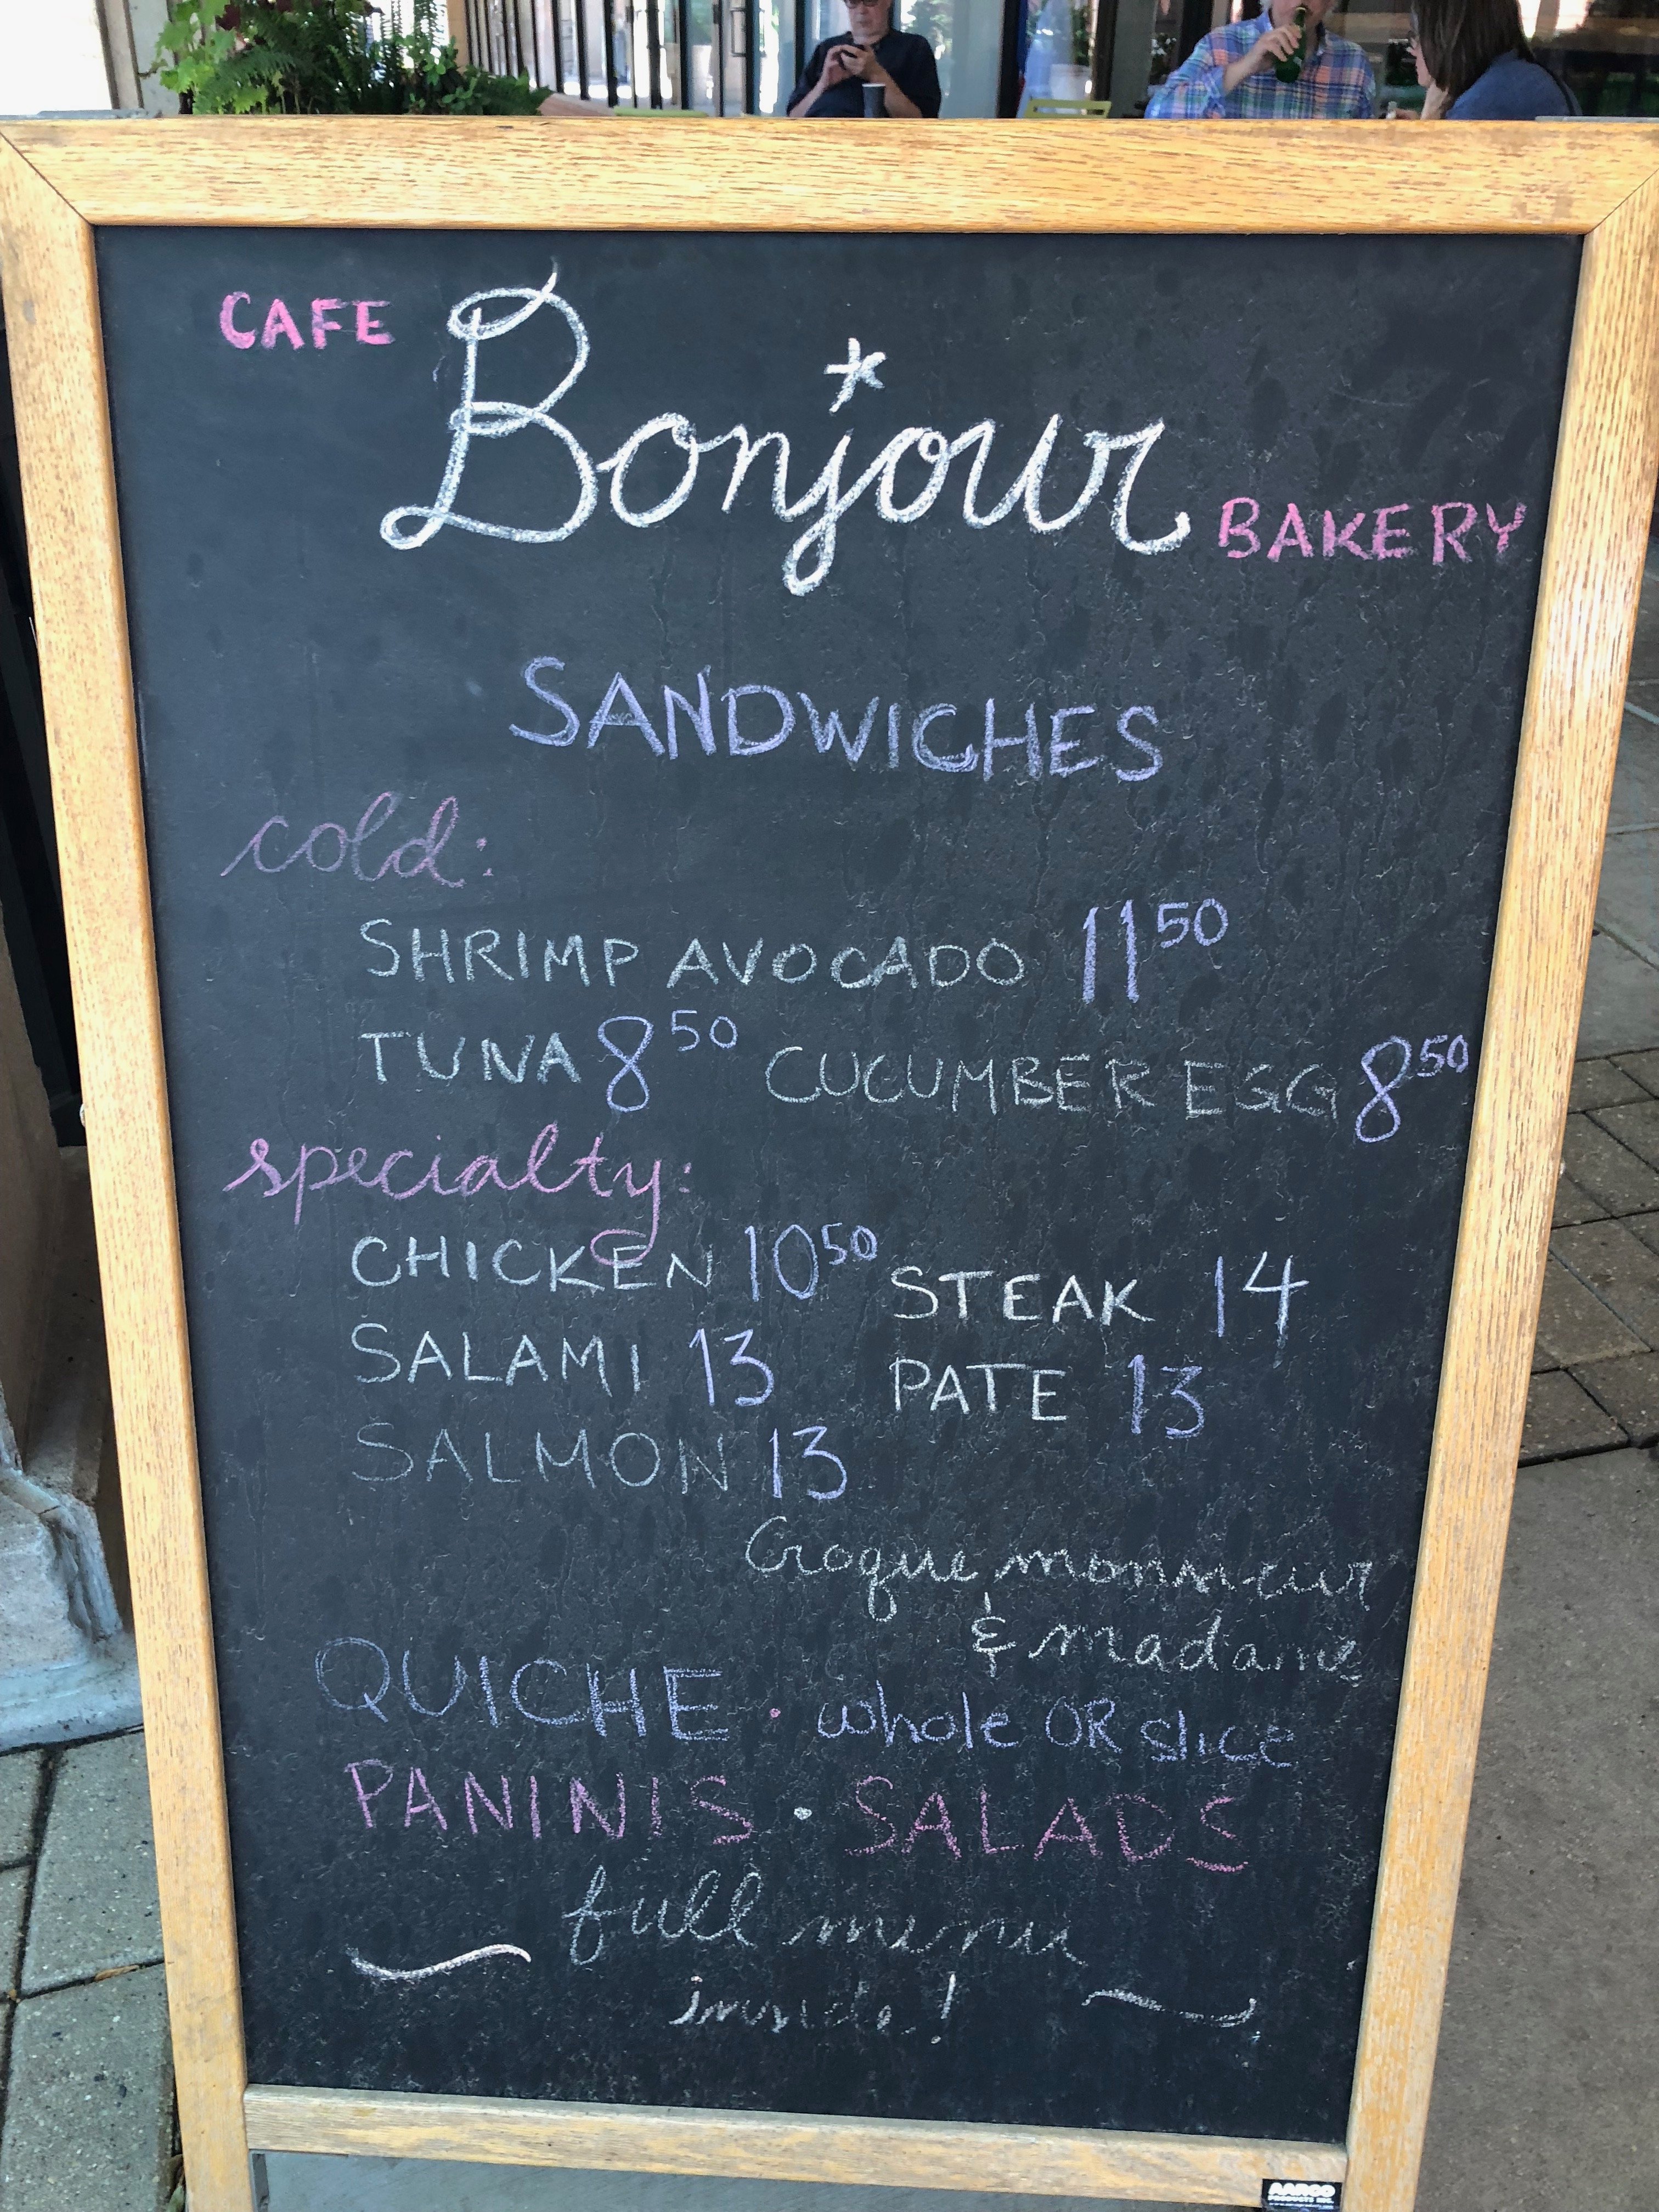 CAFE Bonjour BAKERY
SANDWICHES
cold:
SHRIMP AVOCADO 11 50
TUNA 8 50 CUCUMBER EGG 8 50
specialty:
CHICKEN 10 50 STEAK 14
SALAMI 13 PATE 13
SALMON 13
Croque monsieur
& madame
QUICHE · whole OR slice
PANINIS · SALADS
full menu
inside!
AARCO
PRODUCTS INC.